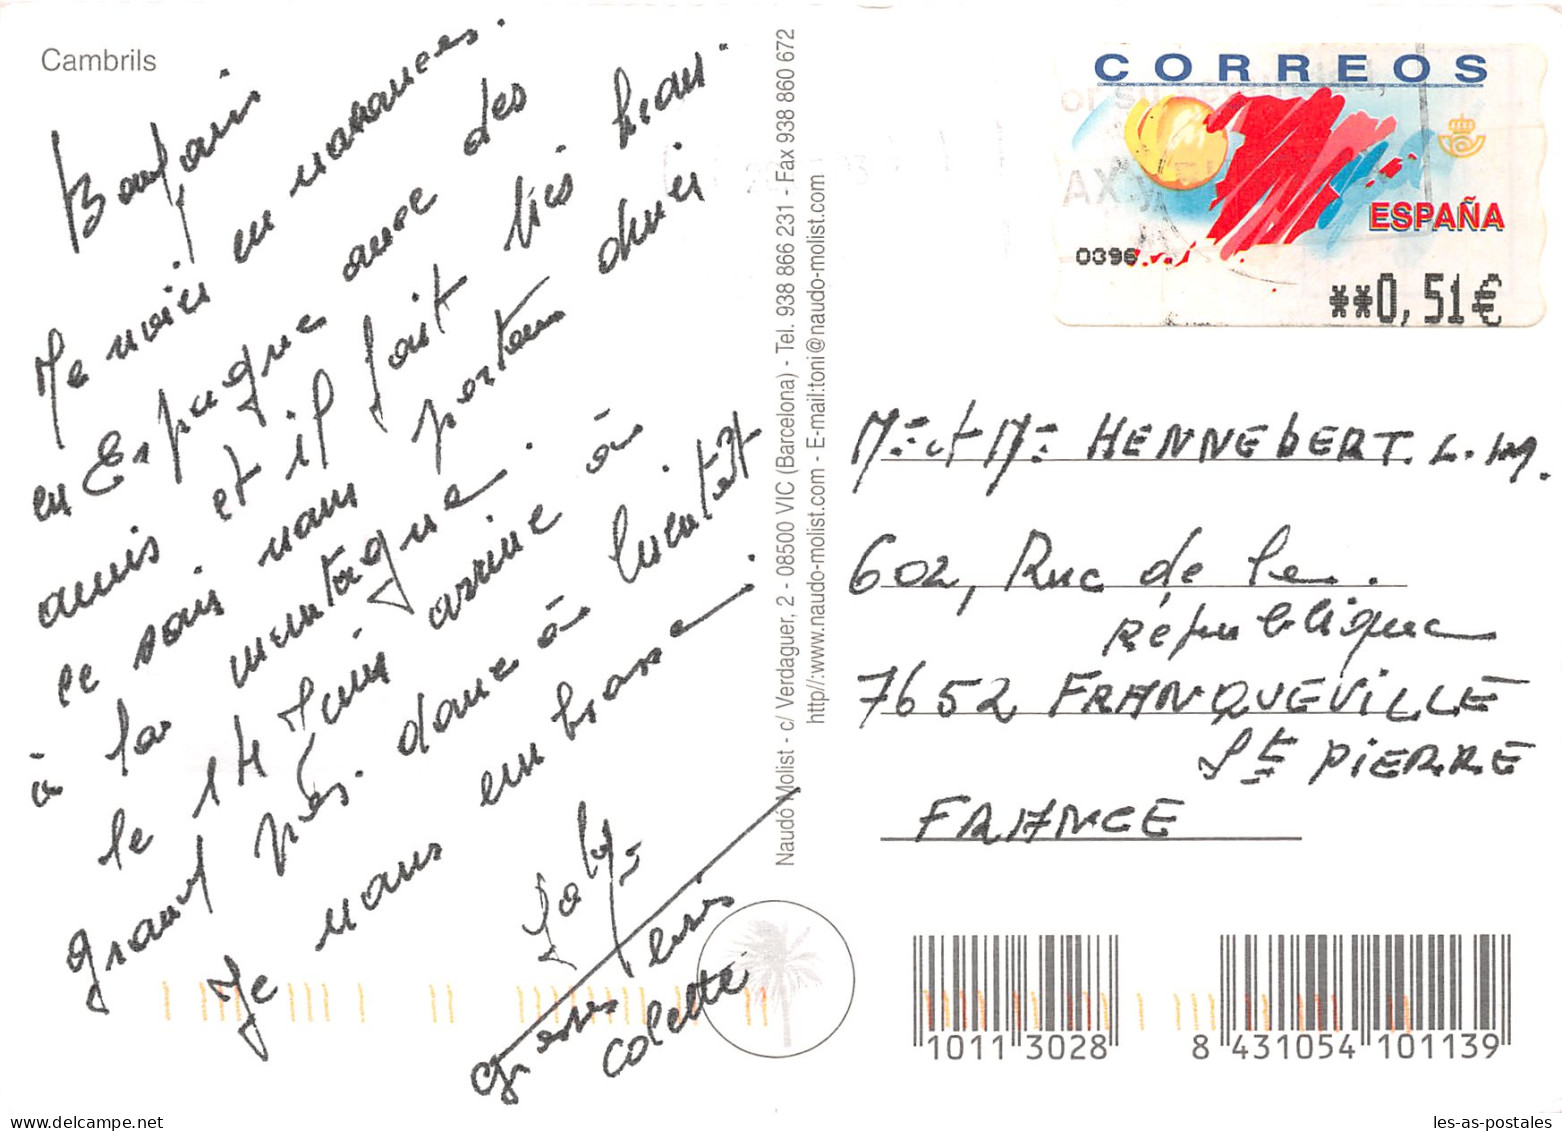 Cambrils
Bonjour
Je suis en vacances.
en Espagne avec des
amis et il fait très beau.
ce soir nous partons dîner
à la montagne.
le 14 Juin arrive à
grand pas. donc à bientôt
Je vous embrasse.
Gros
Colette
Naudó Molist - c/ Verdaguer, 2 - 08500 VIC (Barcelona) - Tel. 938 866 231 - Fax 938 860 672
http//:www.naudo-molist.com - E-mail:toni@naudo-molist.com
CORREOS
ESPAÑA
0396
**0,51€
Mr et Me HENNEBERT. L. M.
602, Rue de le.
République
7652 FRANQUEVILLE
St PIERRE
FRANCE
10113028
8 431054 101139
les-as-postales